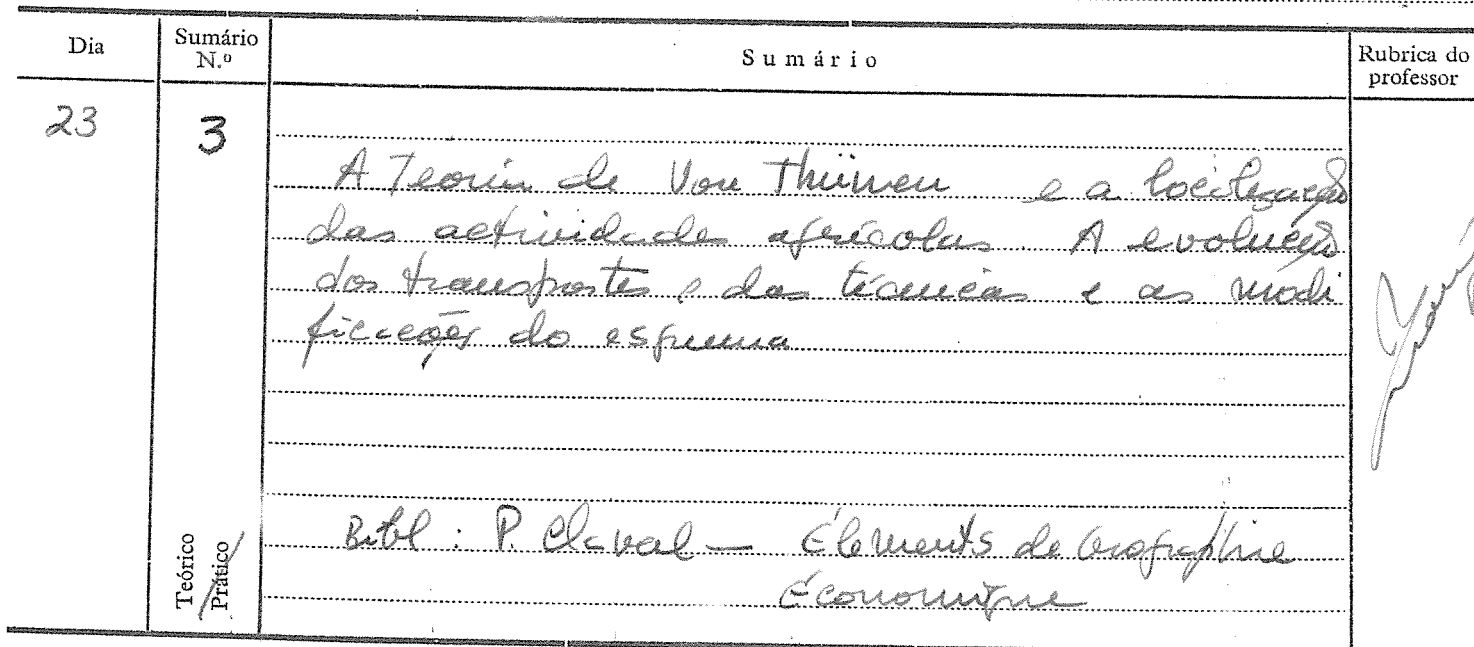 Dia
Sumário
N.º
Sumário
Rubrica do
professor
23
3
A Teoria de Von Thünen e a localização
das actividades agrícolas. A evolução
dos transportes e das técnicas e as modi
ficações do esquema
Bibl : P. Claval — Éléments de Géographie
Économique
Teórico
Prático